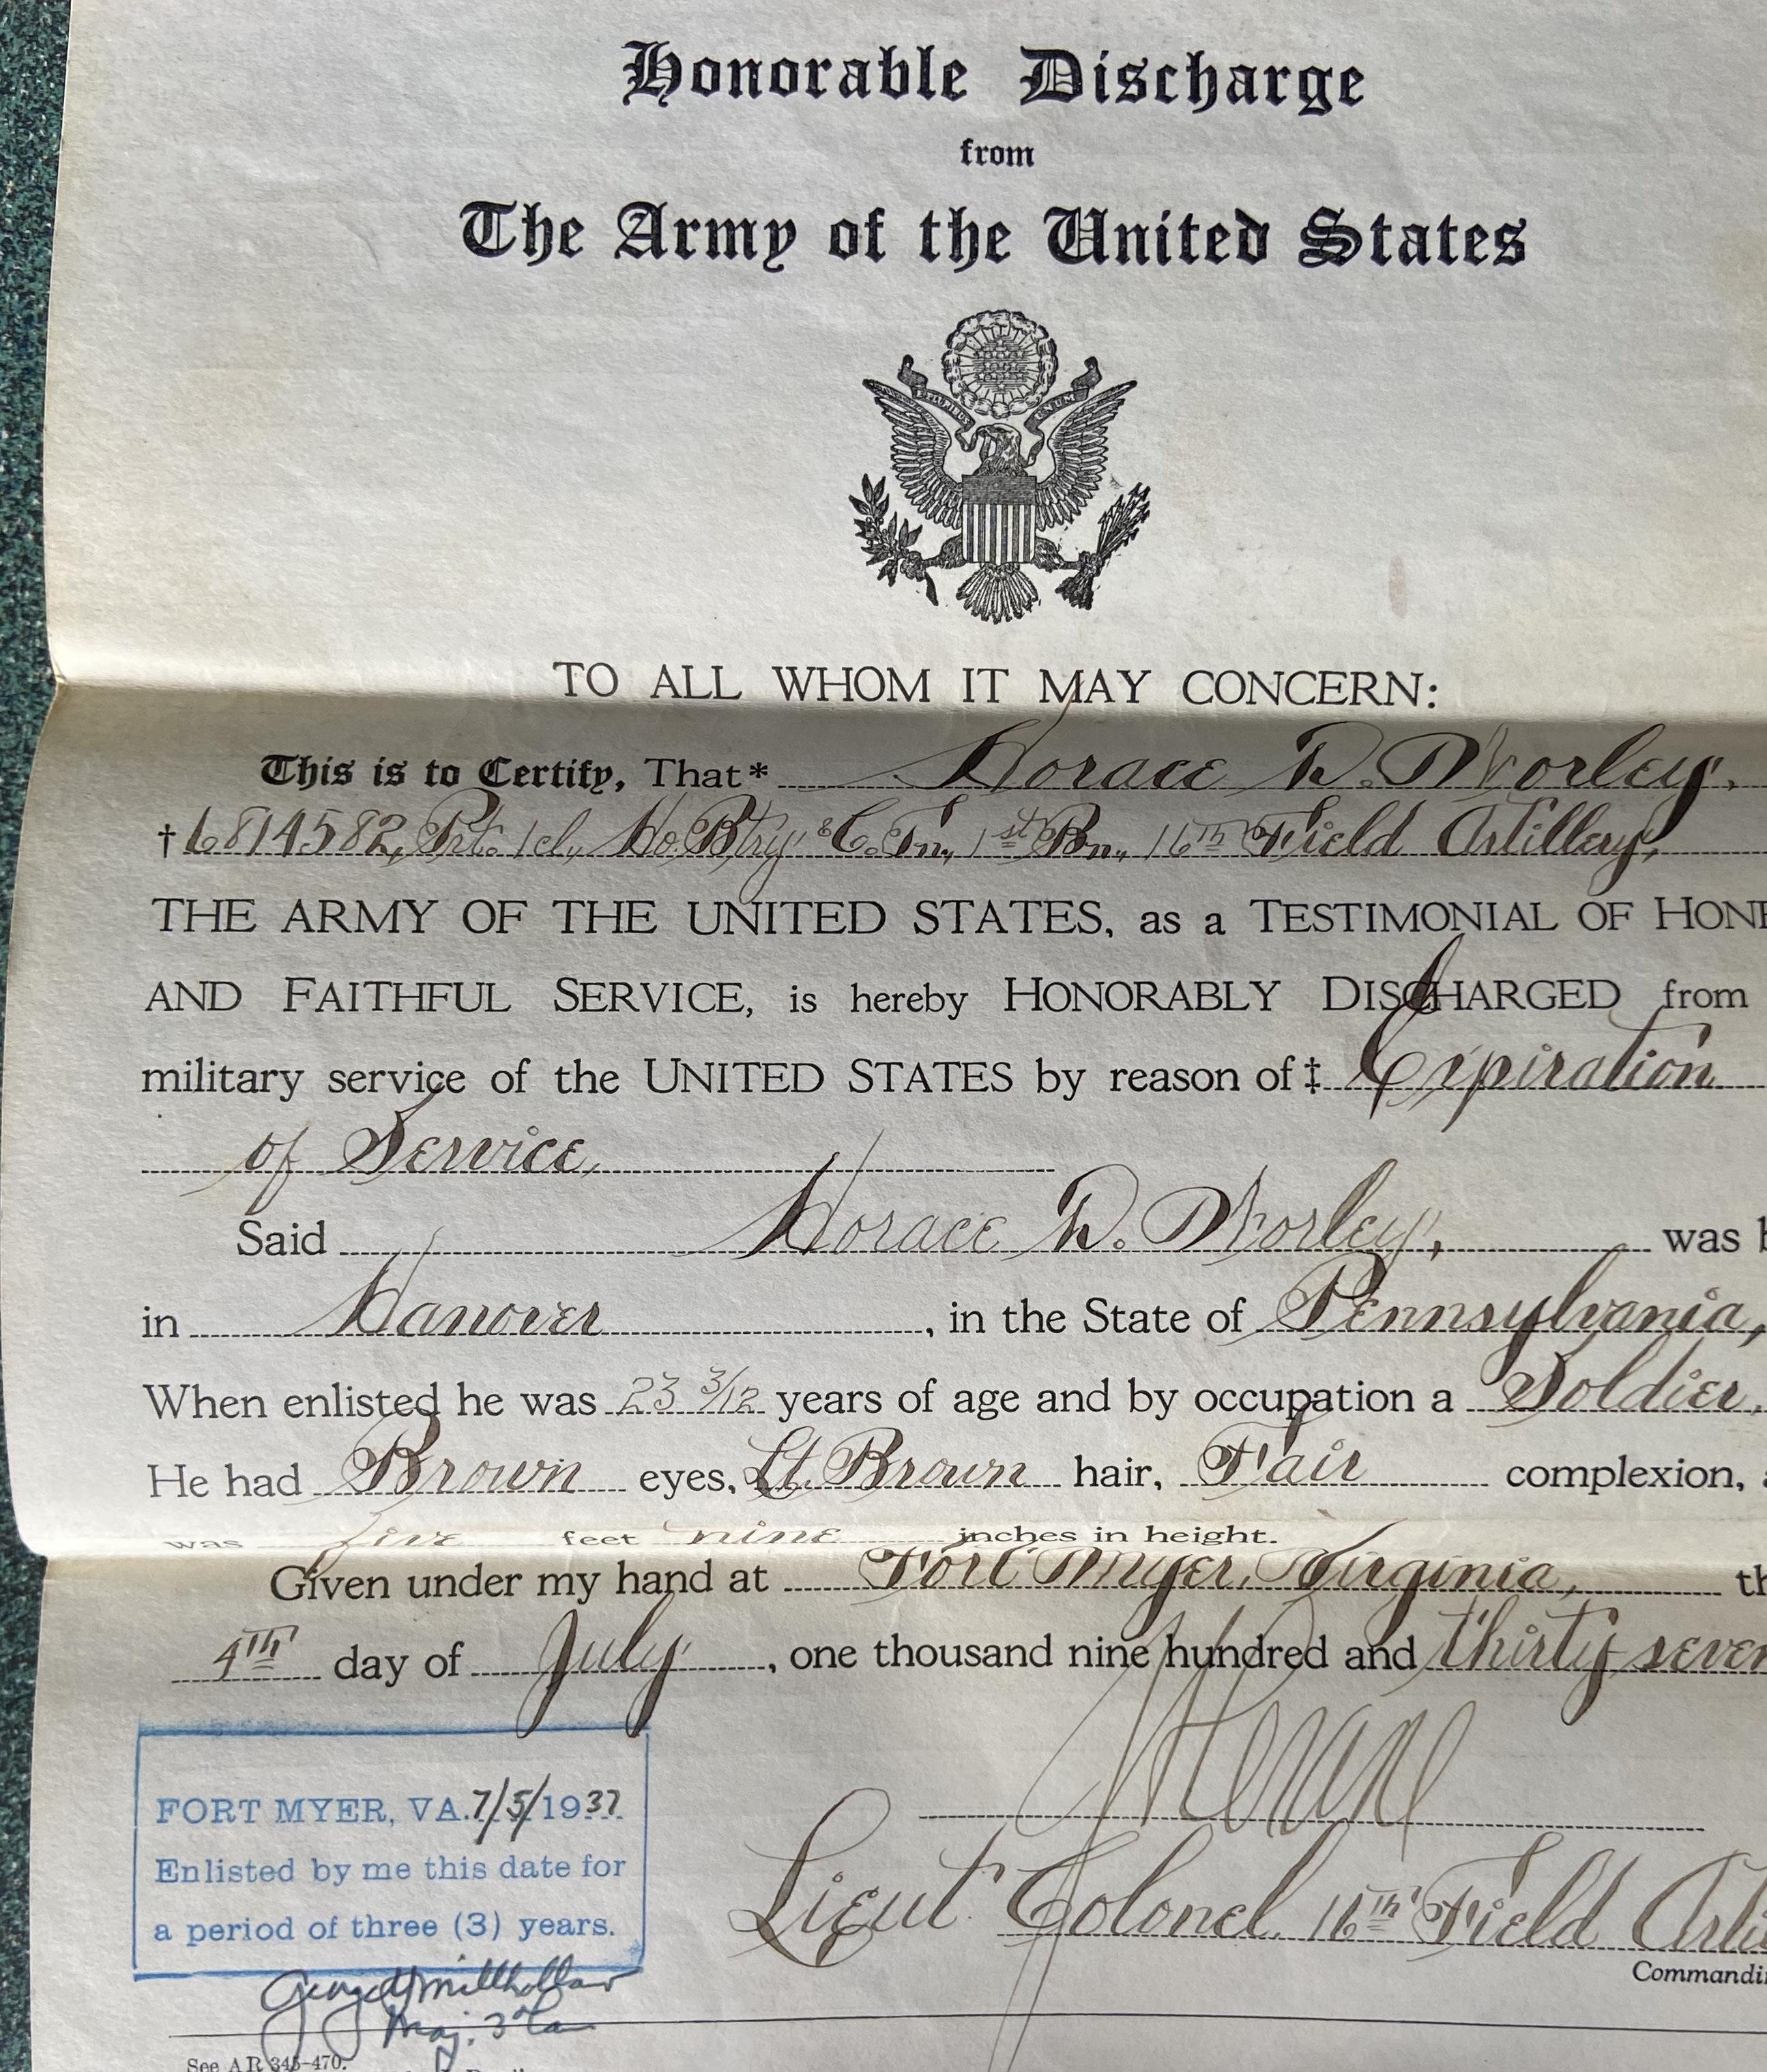 Honorable Discharge
from
The Army of the United States
TO ALL WHOM IT MAY CONCERN:
This is to Certify, That* Horace D. Worley,
†6814582, Pvt. 1cl., Hq. Btry & C. Tn., 1st Bn., 16th Field Artillery,
THE ARMY OF THE UNITED STATES, as a TESTIMONIAL OF HONE
AND FAITHFUL SERVICE, is hereby HONORABLY DISCHARGED from
military service of the UNITED STATES by reason of ‡ Expiration
of Service,
Said Horace D. Worley, was b
in Hanover, in the State of Pennsylvania,
When enlisted he was 23 3/12 years of age and by occupation a Soldier,
He had Brown eyes, Lt. Brown hair, Fair complexion, a
was five feet nine inches in height.
Given under my hand at Fort Myer, Virginia, th
4TH day of July, one thousand nine hundred and thirty seven
FORT MYER, VA. 7/5/1937
Enlisted by me this date for
a period of three (3) years.
Maj.
Lieut. Colonel, 16th Field Arti
Commandin
See AR 345-470.